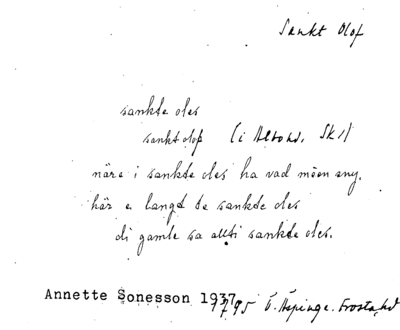 Sankt Olof
sankte oles
sankt olof (i
näre i sankte oles ha vad möen any.
här e langt te sankte oles
di gamle sa allti sankte oles.
Annette Sonesson 1937
Ö. Frosta hd